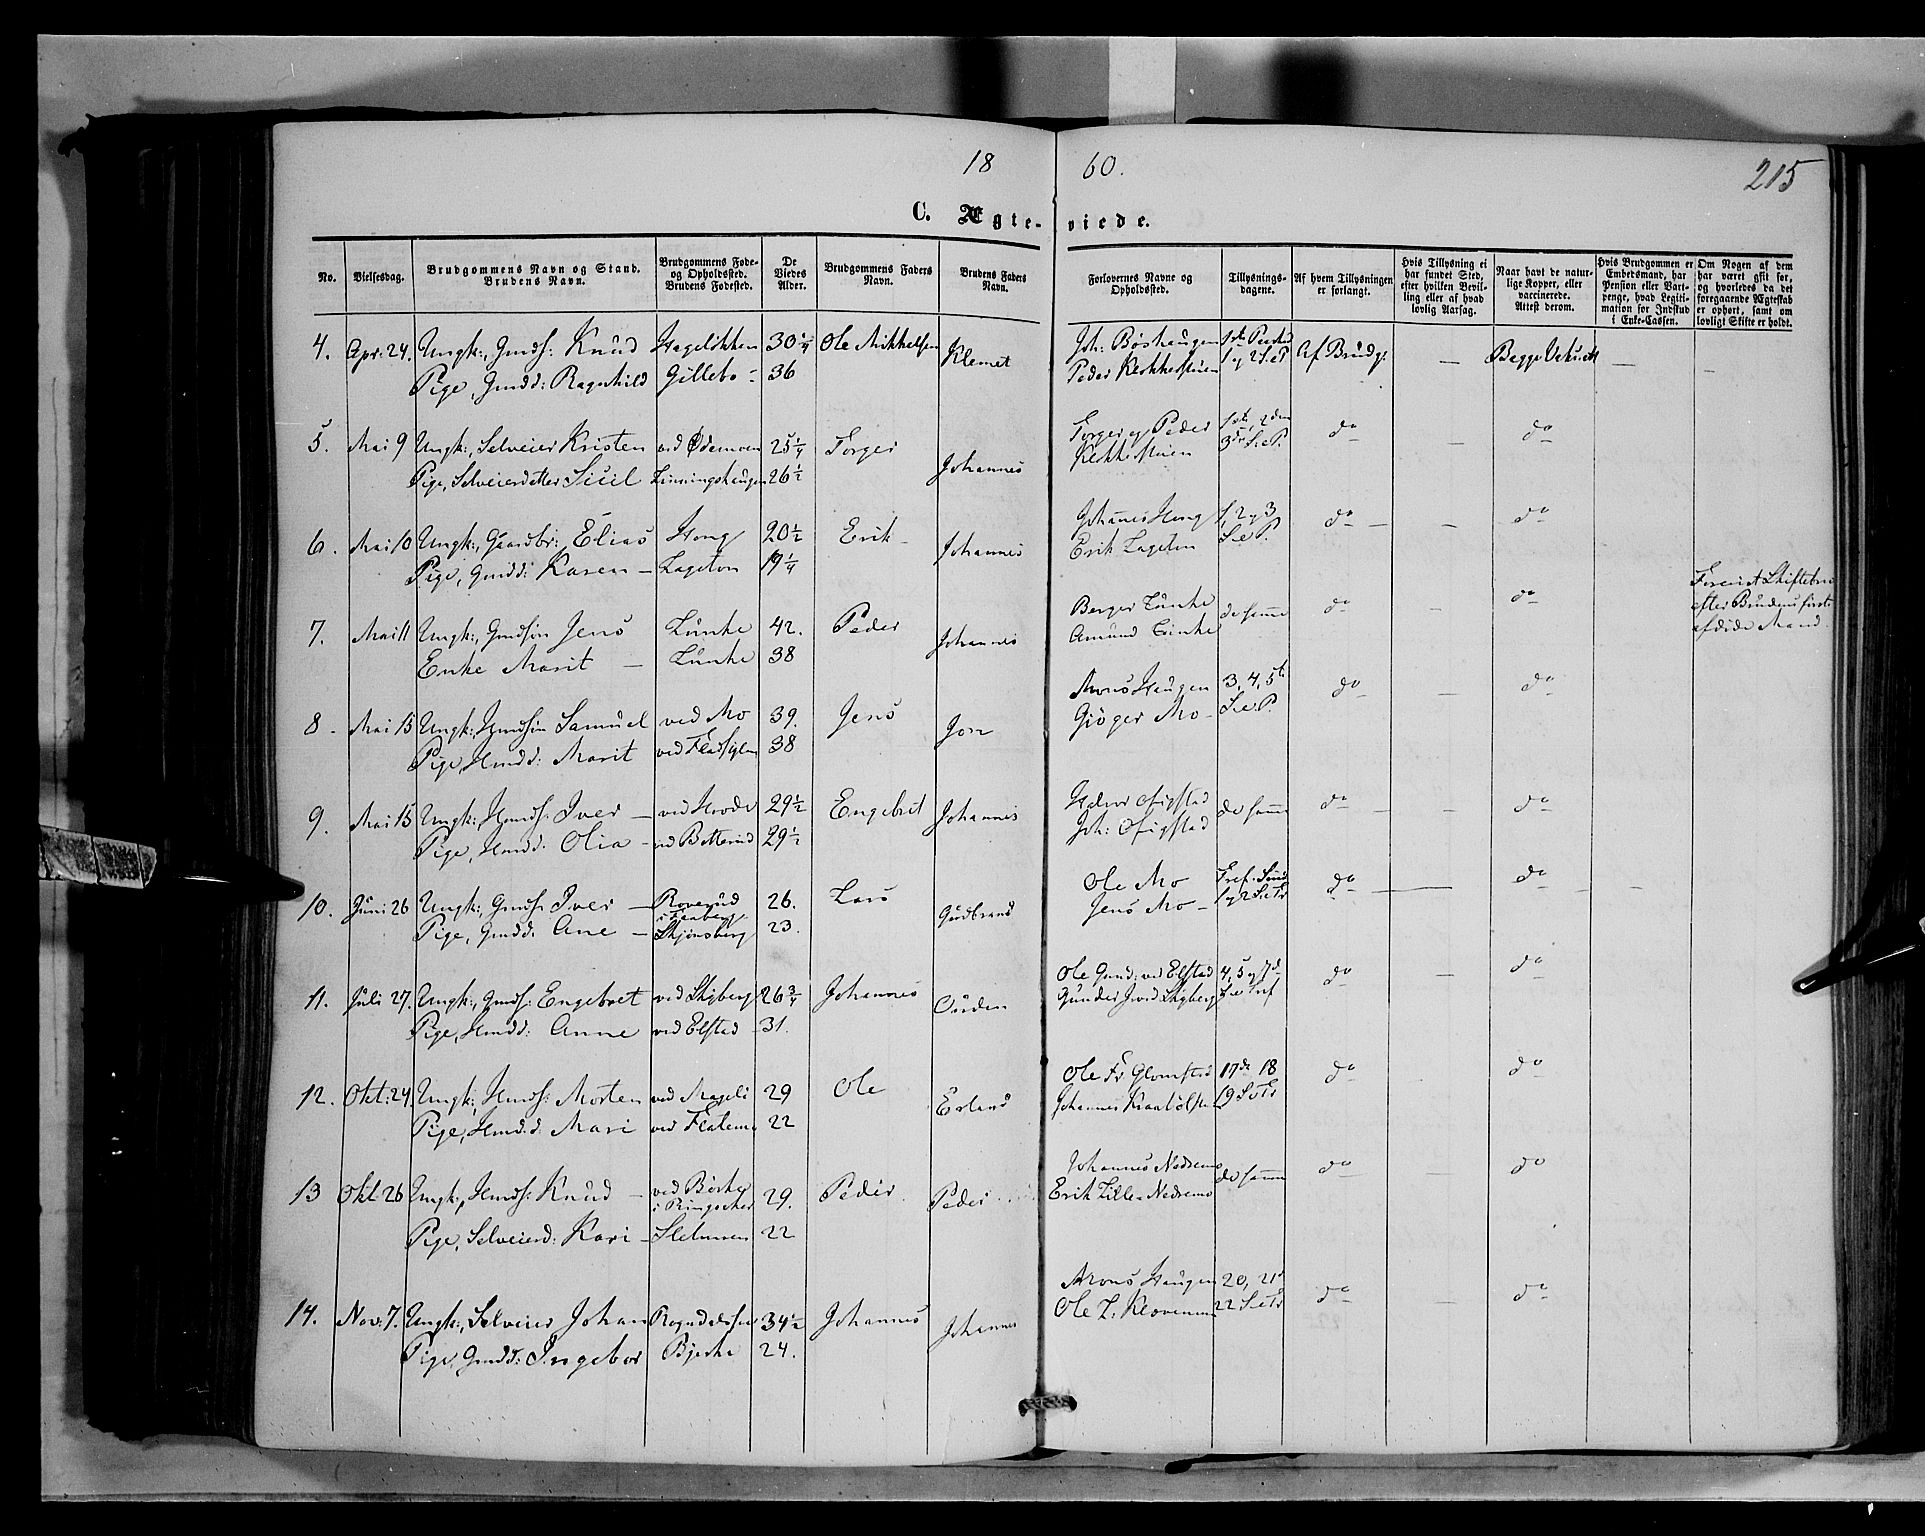 18 60.
215
C. Ægte- viede.
No.
Vielsesdag.
Brudgommens Navn og Stand.
Brudens Navn.
Brudgommens Føde-
og Opholdssted.
Brudens Fødested.
De
Viedes
Alder.
Brudgommens Faders
Navn.
Brudens Faders
Navn.
Forlovernes Navne og
Opholdssted.
Tillysnings-
dagene.
Af hvem Tillysningen
er forlangt.
Hvis Tillysning ei
har fundet Sted,
efter hvilken Bevil-
ling eller af hvad
lovlig Aarsag.
Naar havt de natur-
lige Kopper, eller
vaccinerede.
Attest derom.
Hvis Brudgommen er
Embedsmand, har
Pension eller Vart-
penge, hvad Legiti-
mation for Indskud
i Enke-Cassen.
Om Nogen af dem
har været gift før,
og hvorledes da det
foregaaende Ægteskab
er ophørt, samt om
lovligt Skifte er holdt.
4. Apr. 24. Ungk:, Gmds: Knud Hageløkken 30 1/4 Ole Mikkelsen Klemet Joh: Bøshaugen Af Brudg: — Begge — —
Pige, Gmdd: Ragnhild Gillebo - 36 Peder Klokkerstuen 1 og 2 S.e.P
5. Mai 9 Ungk:, Selveier Kristen ved Ødemoen 25 1/4 Torger Johannes Torger og Peder 1ste, 2den do — do
Pige, Selveierdatter Sicil Linningshaugen 26 1/2 Klokkerstuen 3die S.e.P.
6. Mai 10 Ungk:, Gaardbr: Elias Hong 20 1/2 Erik Johannes Johannes Hong 1, 2 og 3 do — — do
Pige, Gmdd: Karen — Lageton 19 1/4 Erik Lageton S.e.P.
7. Mai 11 Ungk:, Gmdsøn Jens Lunke 42. Peder Johannes Berger Lunke de samme do — do
Enke Marit — Lunke 38 Amund Lunke
efter Brudens først
afdøde Mand.
8. Mai 15 Ungk:, Hmdsøn Samuel ved Mo 39. Jens Jon Mons Haugen 3, 4, 5te do — do
Pige, Hmdd: Marit 38 Gjøger Mo — S.e.P.
9. Mai 15 Ungk:, Hmds: Iver — 29 1/2 Engebret Johannes Ofigstad de samme do — — do
Pige, Hmdd: Olia — 29 1/2 Joh: Ofigstad
10. Juni 26 Ungk:, Gmds: Iver — Roverud 26. Lars Gudbrand Ole Mo do — do — —
i Faaberg
Pige, Gmdd: Ane — Skjønsberg 23. Jens Mo —
11. Juli 27. Ungk:, Gmds: Engebret ved Skyberg 26 3/4 Johannes Ouden Ole Gund: ved Elstad 4, 5 og 7de do — do
Pige, Hmdd: Anne ved Elstad 31. Gunder J. ved Skyberg
12. Okt: 24. Ungk:, Hmds: Morten ved Mageli 29 Ole Erland Ole Fr. Glomstad 17de 18 do do
Pige, Hmdd: Mari ved Flatemo 22 Johannes 19 S.e.Tr
13 Okt 26 Ungk:, Hmds: Knud — ved Børke 29. Peder Peder Johannes Nedremo de samme do — do
i Ringsaker
Pige, Selveierd: Kari — Sletmoen 22 Erik Lille-Nedremo
14. Nov: 7. Ungk:, Selveier Johan 34 1/2 Johannes Johannes Mons Haugen 20, 21de do — do
Pige, Gmdd: Ingebor Bjerke 24. Ole L. 22 S.e.Tr